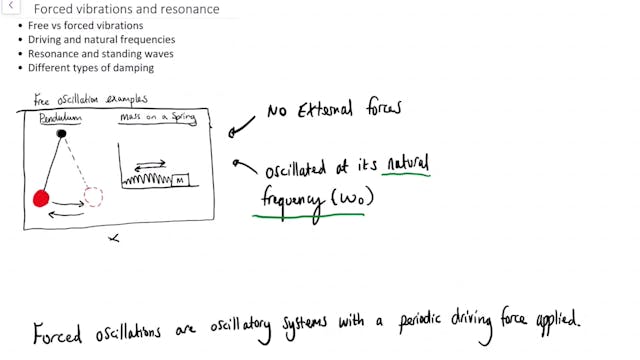 Forced vibrations and resonance
• Free vs forced vibrations
• Driving and natural frequencies
• Resonance and standing waves
• Different types of damping
Free oscillation examples
Pendulum
Mass on a Spring
M
No External forces
oscillated at its natural
frequency (ω₀)
Forced oscillations are oscillatory systems with a periodic driving force applied.